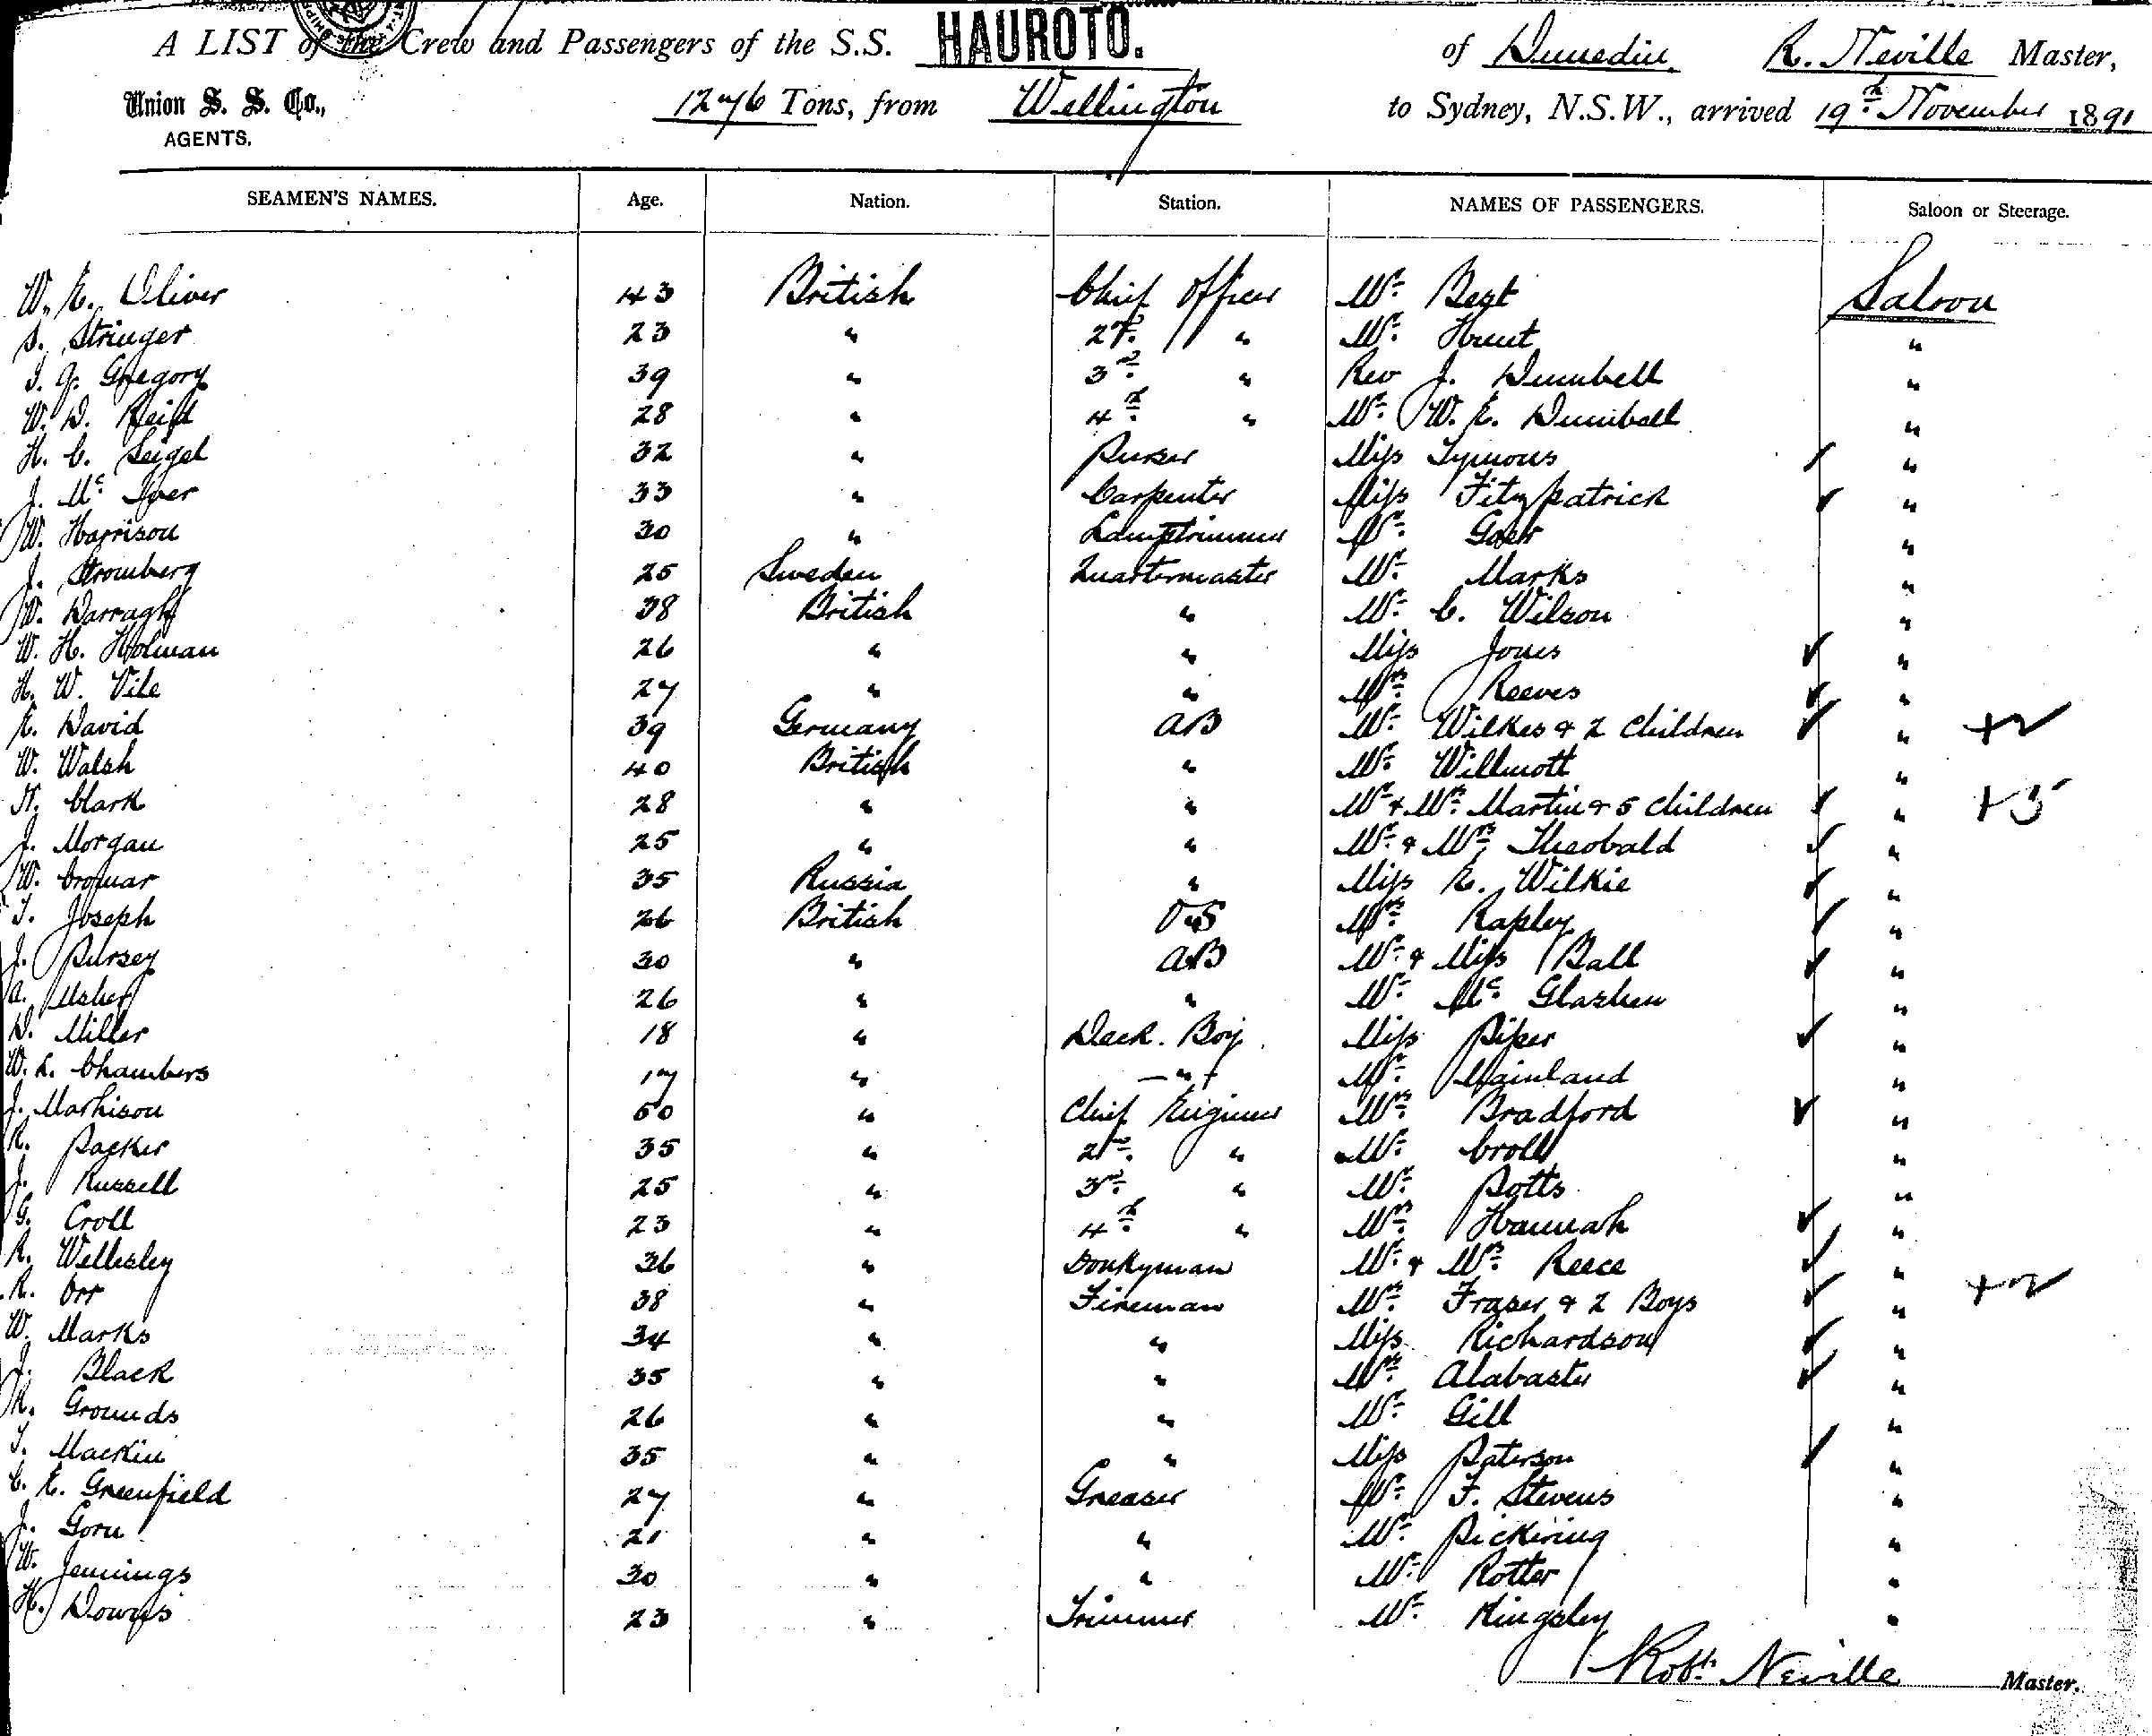 A LIST of the Crew and Passengers of the S.S. HAUROTO. of Dunedin, R. Neville Master,
Union S. S. Co., 1276 Tons, from Wellington to Sydney, N.S.W., arrived 19th November 1891
AGENTS.
SEAMEN'S NAMES. Age. Nation. Station. NAMES OF PASSENGERS. Saloon or Steerage.
W. E. Oliver 43 British Chief Officer Mr. Begt Saloon
S. Stringer 23 " 2nd " Mr. Hunt "
J. G. Gregory 39 " 3rd " Rev J. Dumbell "
W. D. Reid 28 " 4th " Mr. W. E. Dumball "
H. C. Seigel 32 " Purser Miss Tymons "
J. Mc Iver 33 " Carpenter Miss Fitzpatrick "
W. Harrison 30 " Lamptrimmer Mr. "
J. Stromberg 25 Sweden Quartermaster Mr. Marks "
W. Darragh 38 British " Mr. C. Wilson "
W. H. Holman 26 " " Miss Jones "
H. W. Vile 27 " " Mrs. Reeves "
E. David 39 Germany AB Mr. Wilkes & 2 Children " +2
W. Walsh 40 British " Mr. Willmott "
N. Clark 28 " " Mr & Mrs. Martin & 5 Children " +5
J. Morgan 25 " " Mr. & Mrs. Theobald "
W. Cromar 35 Russia " Miss E. Wilkie "
T. Joseph 26 British OS Mrs. Rapley "
J. Pursey 30 " AB Mr. & Miss Ball "
A. Usher 26 " " Mr. Mc. Glashen "
D. Miller 18 " Deck. Boy. Miss Piper "
W. L. Chambers 17 " — " — Mr. Mainland "
J. Mathison 50 " Chief Engineer Mrs. Bradford "
R. Packer 35 " 2nd. " Mr. Croll "
J. Russell 25 " 3rd. " Mr. Potts "
G. Croll 23 " 4th " Mrs. Hannah "
R. Wellesley 36 " Donkyman Mr. & Mrs. Reece "
R. Orr 38 " Fireman Mrs. Fraser & 2 Boys " +2
W. Marks 34 " " Miss Richardson "
J. Black 35 " " Mrs. Alabaster "
R. Grounds 26 " " Mr. Gill "
T. Mackin 35 " " Miss Paterson "
C. E. Greenfield 27 " Greaser Mr. F. Stevens "
J. Gorn 21 " " Mr. Pickering "
W. Jennings 30 " " Mr. Rotter "
H. Downs 23 " Trimmer Mr. Kingsley "
Robt. Neville Master.